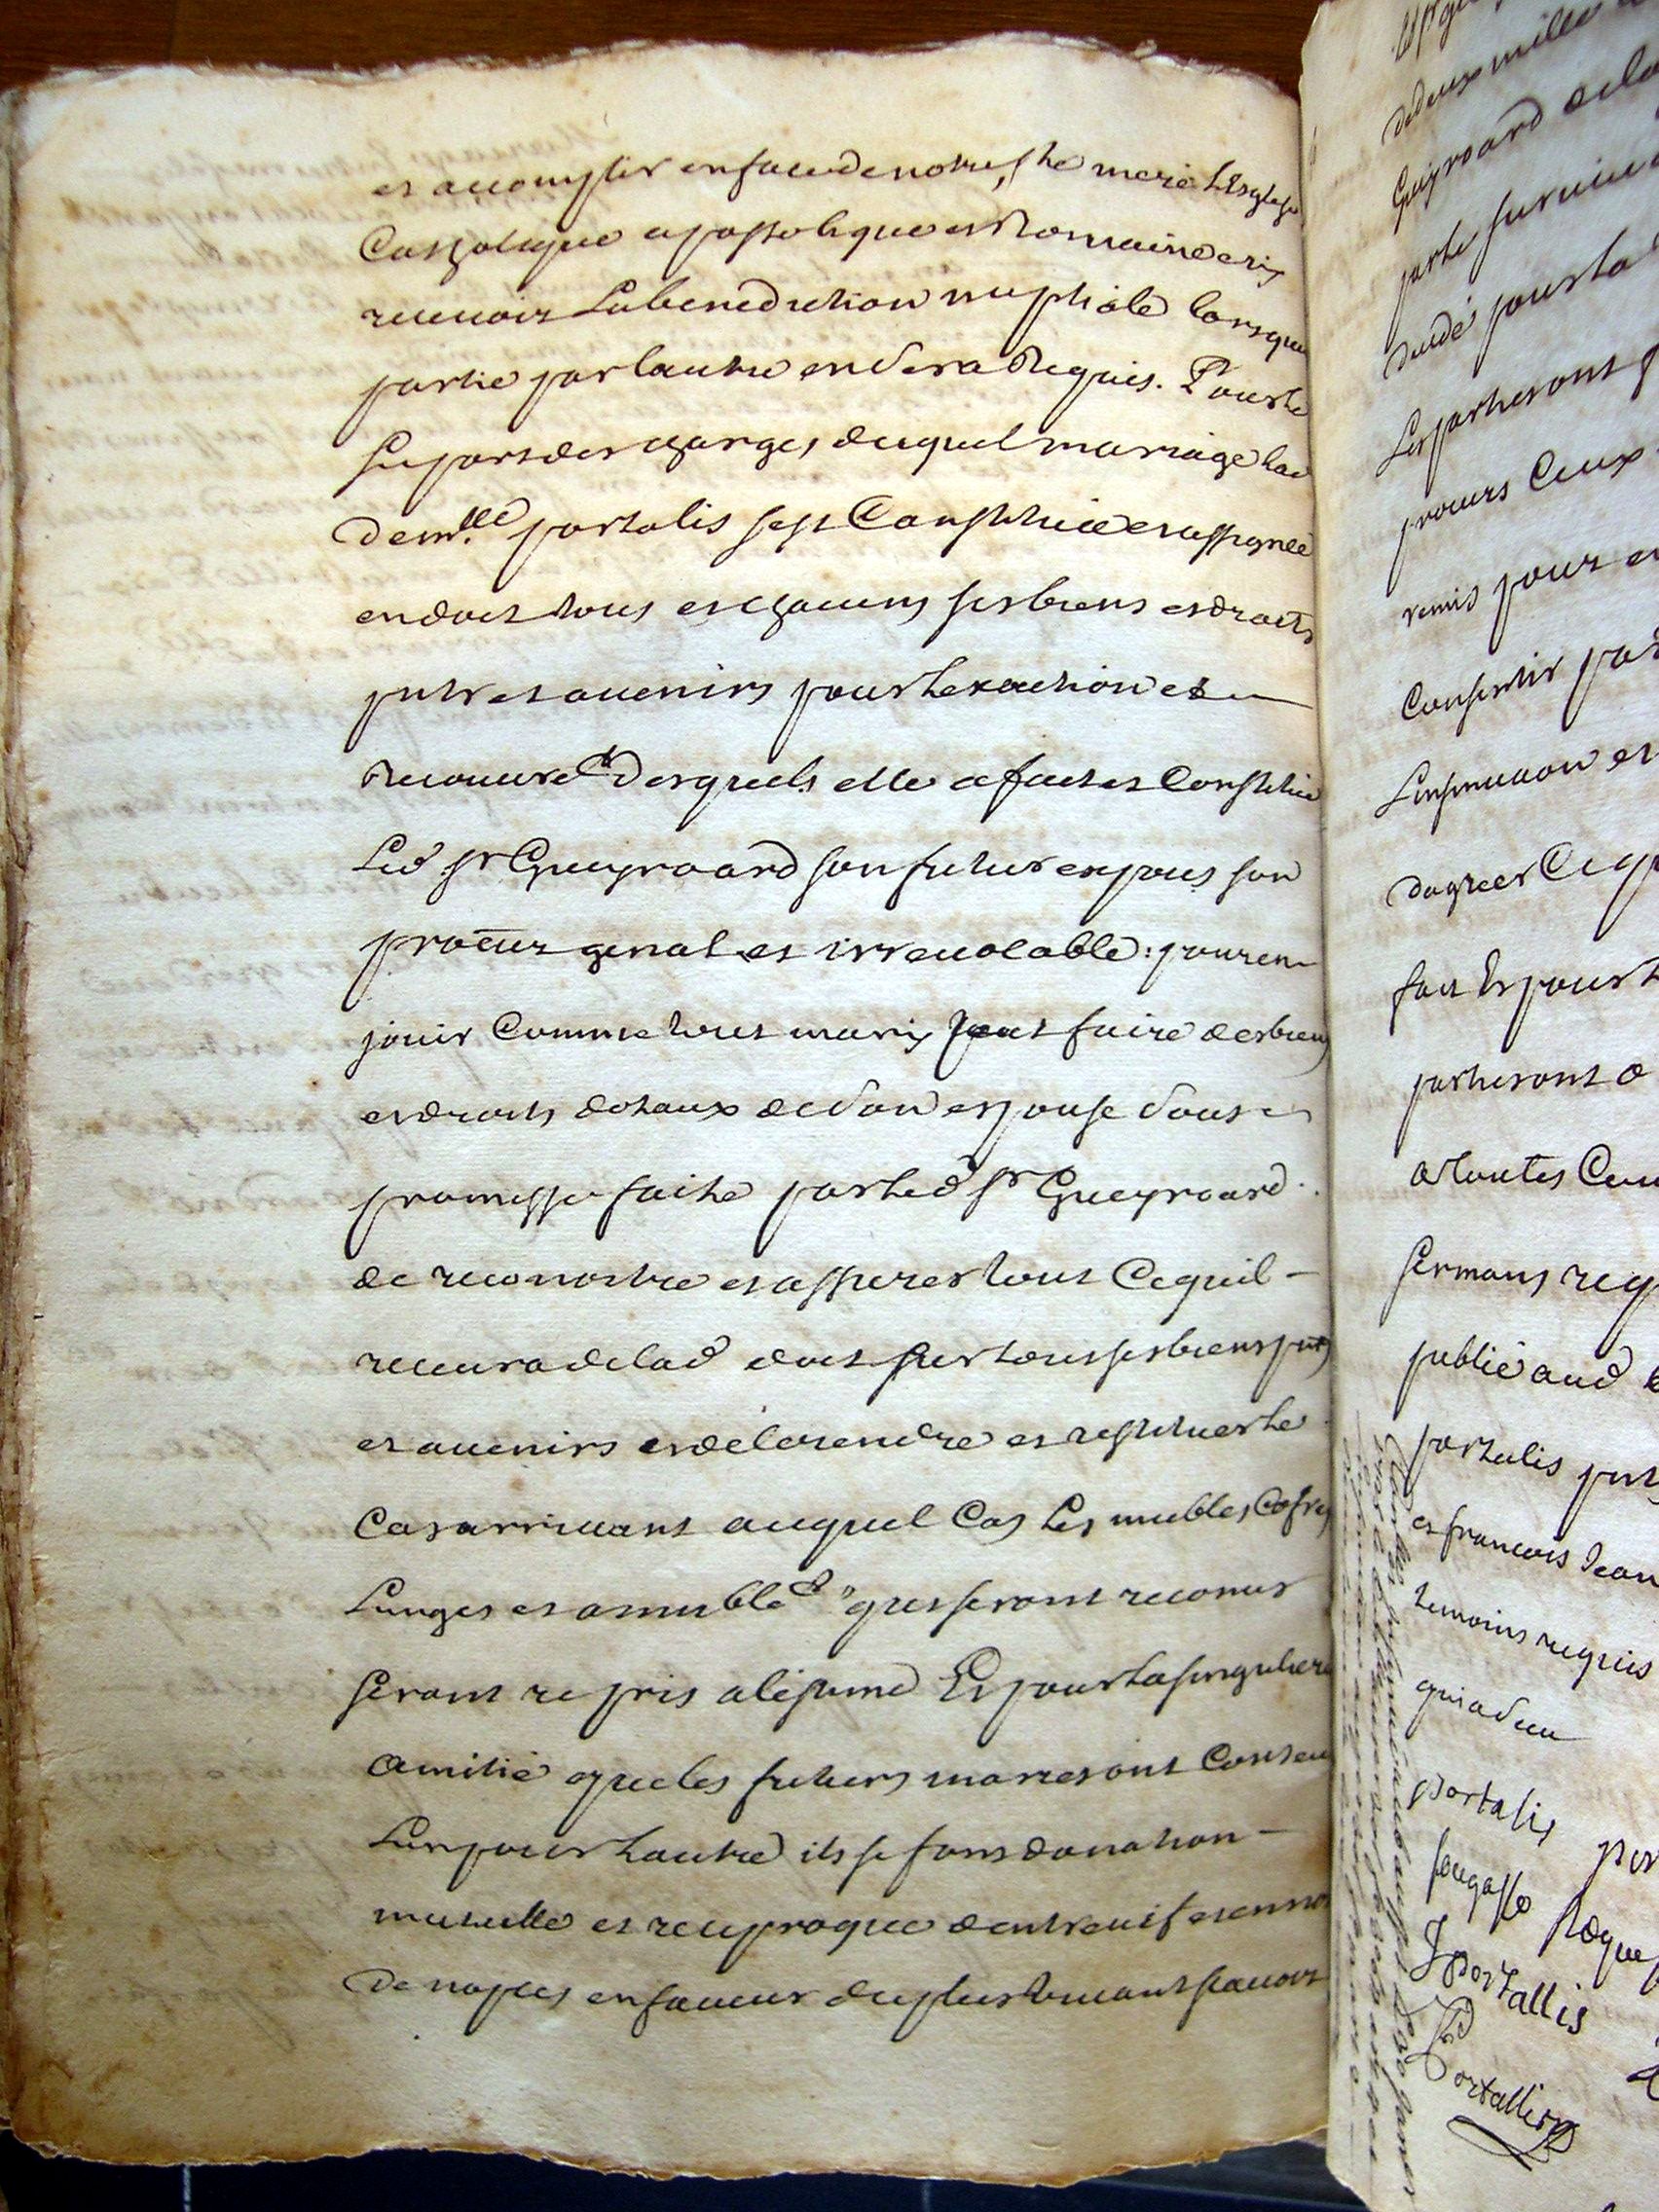 et accomplir en face de notre Ste mere L'Esglise
Catholique apostolique et Romaine et y
recevoir La benediction nuptiale lorsque
partie par lautre en Sera Requis. Pour le
suport des charges duquel mariage lad
demlle portalis sest Constituée et assignée
en dot tous et chacuns ses biens et droits
pnts et avenirs pour lexaction et
Recouvret desquels elle a fait et Constitué
Led Sr Gueyroard son futur espous son
procur genal et irrevocable: pour en
jouir Comme tout mary peut faire des biens
et droits dotaux de Son espouse Sous
promesse faite par led Sr Gueyroard
de reconoitre et assurer tout Ce quil
recevra de lad dot sur tous ses biens pnts
et avenirs et de la rendre et restituer le
Cas arrivant auquel Cas Les meubles Cofres
Linges et amublet qui seront reconus
seront repris a lestime Et pour la singuliere
amitié que les futurs mariés ont Conceu
Lun pour lautre ils se font donation
mutuelle et reciproque dentre vif et en no
de nopces en faveur du plus vivant scavoir
de deux mille
Gueyroard
partie survi
Les parties ont
procurs Ceux
remis pour
Consentir par
Linsinuaon et
dagreer Ce q
fait Et pour
parties ont o
a toutes Cou
sermans req
publié aud
portalis pnts
et francois Jean
temoins requis
qui a sceu
portalis
fougasse
J portallis
Portallis